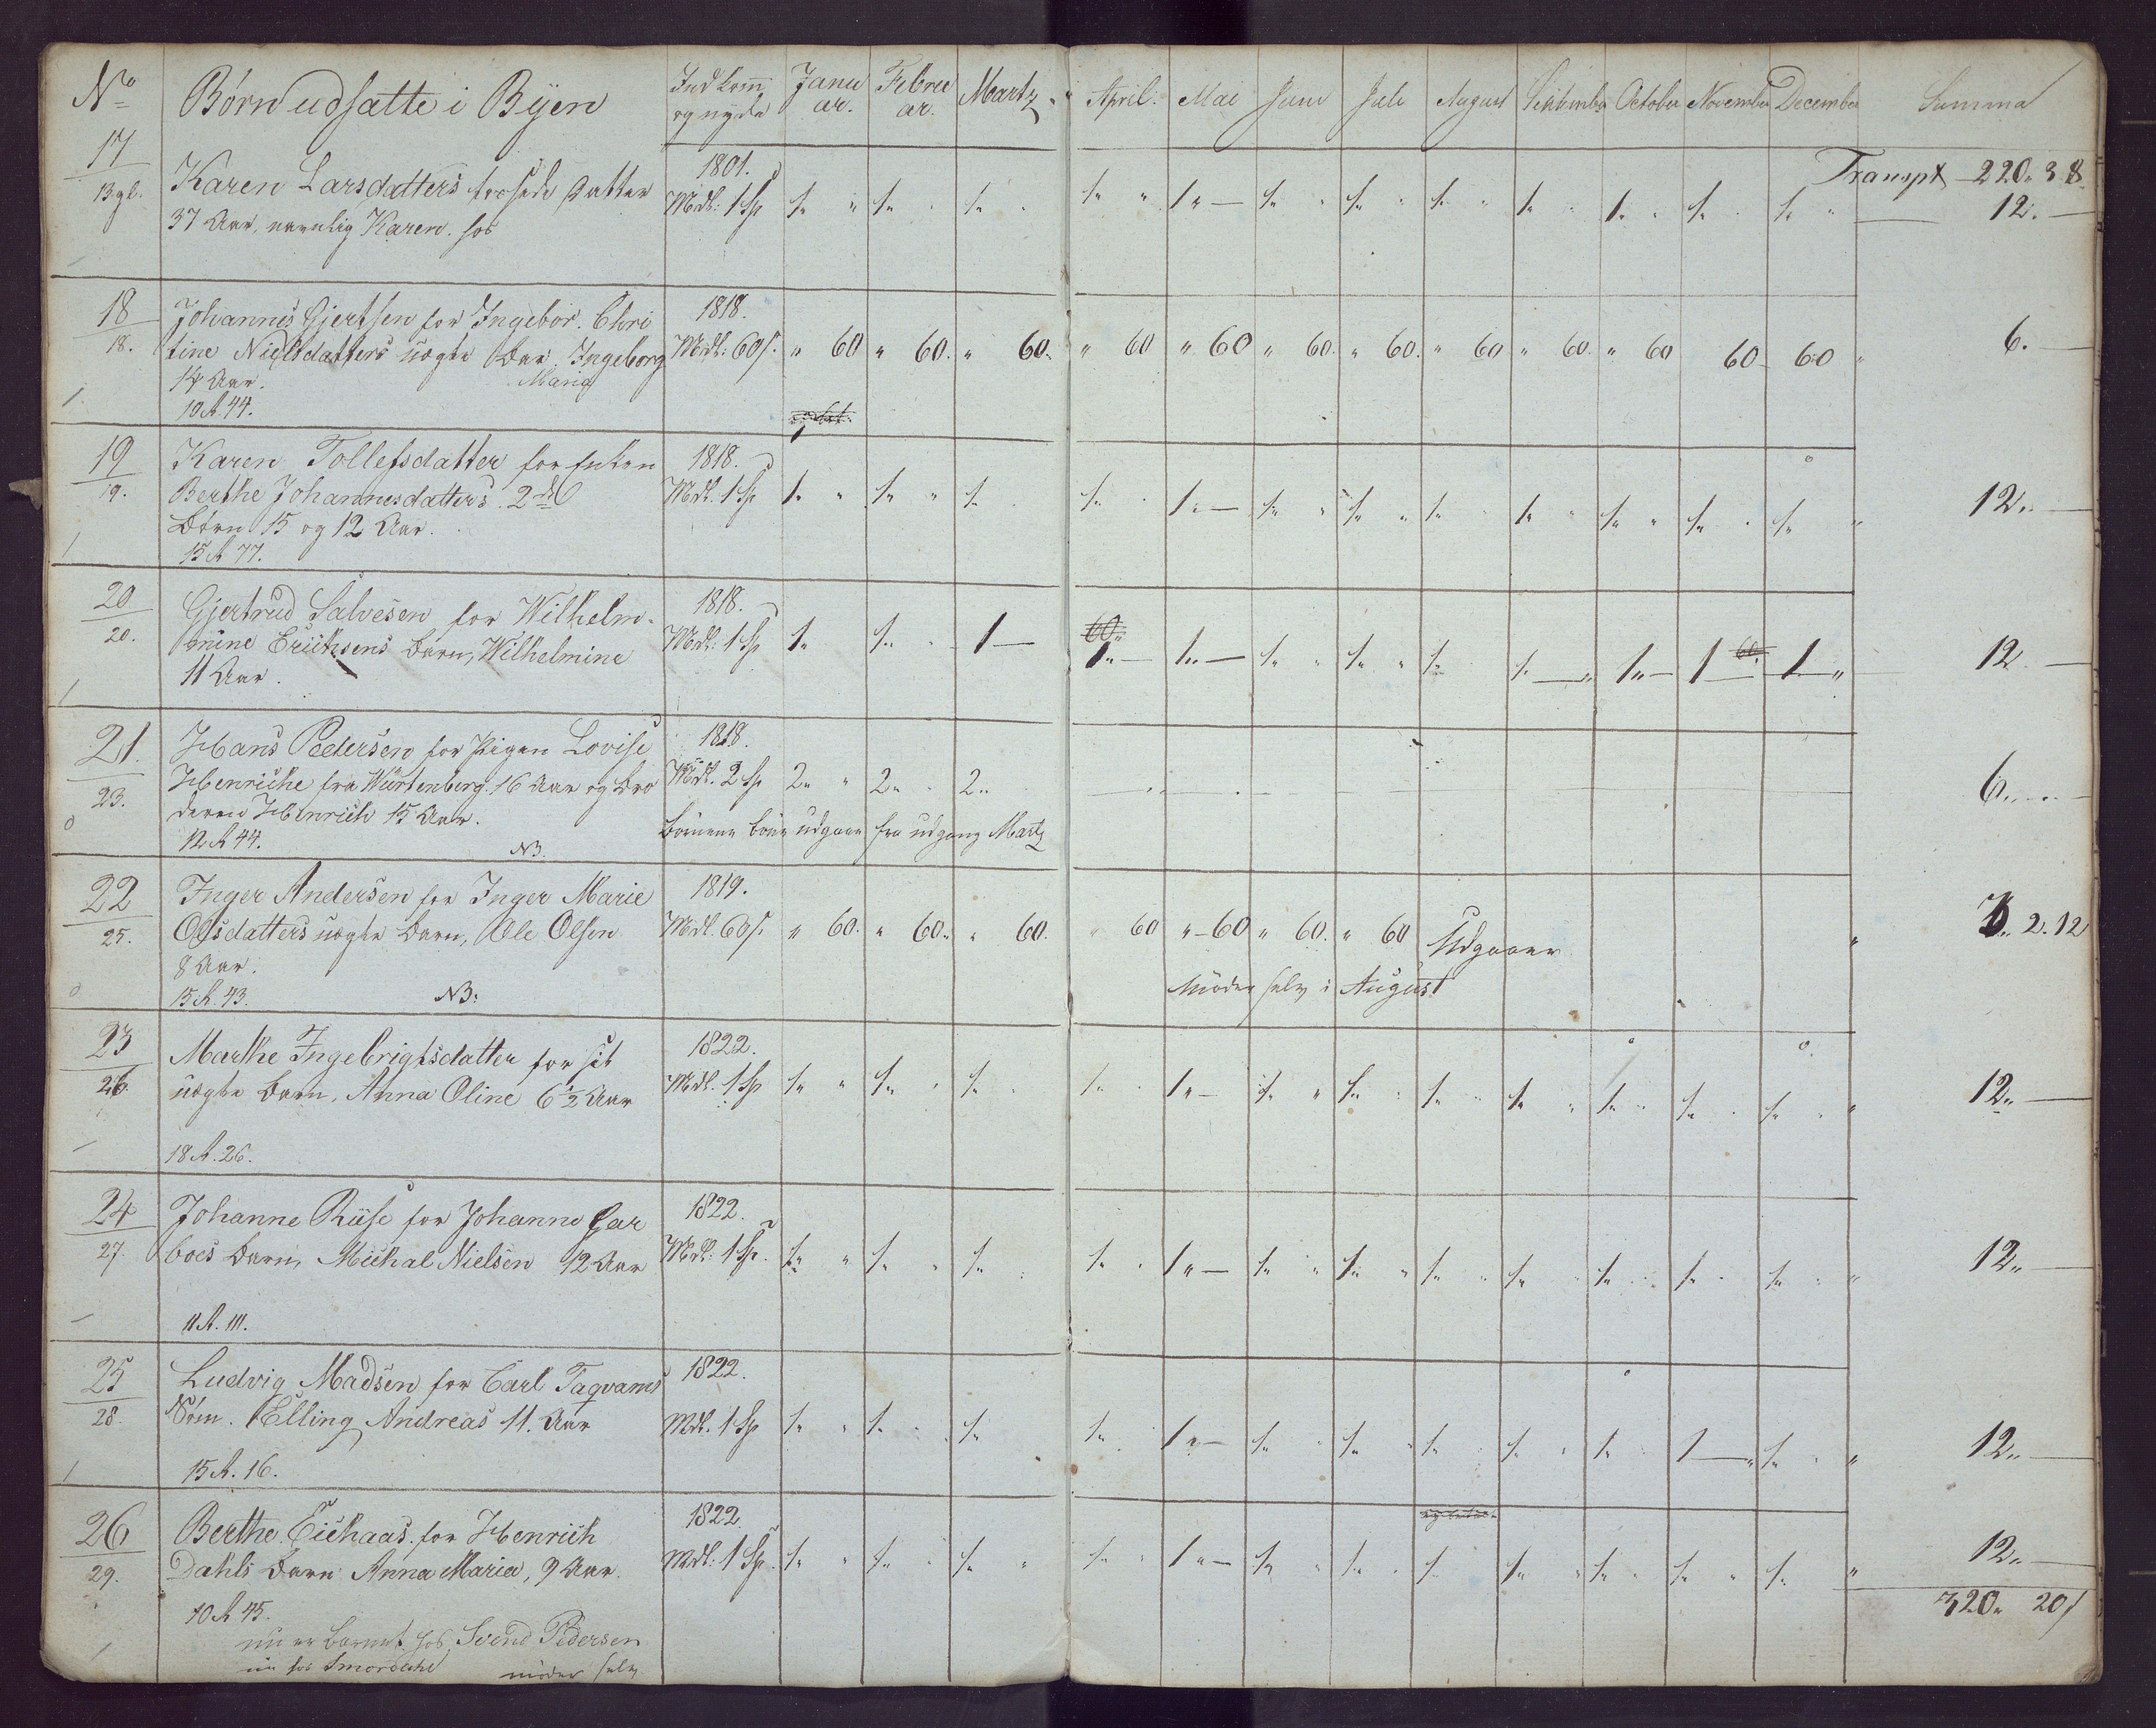 No Børn udsatte i Byen Indkom̄ og nyde Januar. Februar. Martz April. Mai Juni Juli August Septembr October November December Summa
Transpt 220. 3. 8.
17 Karen Larsdatters datter 1801.
13 gl. 37 Aar, navnlig Karen. hos Mdl: 1 Sp 1„ „ 1„ 1„ 1„ „ 1„ — 1„ 1„ 1„ 1„ 1„ 1„ 1„ 12. —
18 Johannes Gjertsen for Ingebor. Chri 1818.
18. tine Nielsdatters uægte Barn Ingeborg Mdl: 60 s. „ 60 „ 60. „ 60. „ 60 „ 60 „ 60. „ 60. „ 60 „ 60. „ 60 60 60 6. —
14 Aar. Maria
10 A 44.
19 Karen Tollefsdatter for Enken 1818.
19. Berthe Johannesdatters 2de Mdl. 1 Sp 1„ „ 1„ „ 1„ 1„ 1„ — 1„ 1„ 1„ 1„ 1„ 1„ 1„ 12„ —
Børn 15 og 12 Aar.
15 A 77.
20 Gjertrud Salvesen for Wilhelm- 1818.
20. mine Erichsens Barn, Wilhelmine Mdl: 1 Sp 1„ 1„ 1 — 60„ 1„ — 1„ — 1„ 1„ 1„ 1„ — 1„ — 1 60 1„ 12 —
11 Aar.
21. Hans Pedersen for Pigen Lovise 1818.
23. Henriche fra Würtenberg 16 Aar og Bro Mdl. 2 Sp 2„ „ 2„ 2„ 6„ —
deren Henrich 15 Aar. Børnene udgaar fra udgang Martz
12 A 44. NB.
22 Inger Andersen for Inger Marie 1819.
25. Olsdatters uægte Barn, Ole Olsen Mdl. 60 s. „ 60. „ 60. „ 60. „ 60 „ 60 „ 60. „ 60 Udgaaer 2. 12
8 Aar. Moder selv i August
15 A. 43. NB:
23 Marthe Ingebrigtsdatter for sit 1822.
26. uægte Barn, Anna Oline 6½ Aar Mdl. 1 Sp 1„ „ 1„ 1„ 1„ 1„ — 1„ 1„ 1„ 1„ 1„ 1„ 1„ 12„ —
18 A. 26.
24 Johanne Riise for Johanne Gar 1822.
27. boes Barn, Michal Nielsen 12 Aar Mdl: 1 Sp. 1„ „ 1„ 1„ 1„ 1„ — 1„ 1„ 1„ 1„ 1„ 1„ 1„ 12„ —
11 A. 111.
25 Ludvig Madsen for Carl Taqvams 1822.
28. Søn. Elling Andreas 11. Aar Mdl. 1 Sp 1„ 1„ 1„ 1„ 1„ — 1„ 1„ 1„ 1„ 1„ 1 — 1„ 12„ —
15 A. 16.
26 Berthe Eichaas. for Henrich 1822.
29. Dahls Barn Anna Maria, 9 Aar. Mdl: 1 Sp. 1„ „ 1„ 1„ 1„ 1„ — 1„ 1„ 1„ 1„ 1„ 1„ 1„ 12„ —
10 A 45. 320„ 20 s
nu er Barnet hos Svend Pedersen
nu hos moder selv